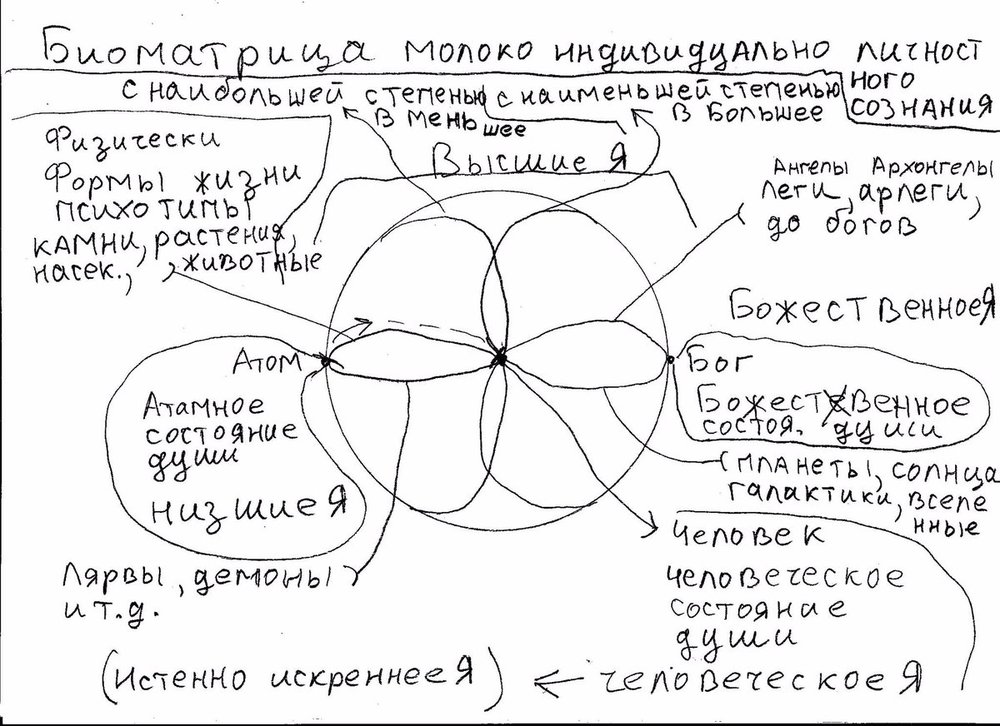 Биоматрица молоко индивидуально личност
ного
сознания
с наибольшей степенью
в меньшее
с наименьшей степенью
в большее
Физически
Формы жизни
психотипы
камни, растения,
насек., животные
Высшие Я
Ангелы Архонгелы
леги, арлеги,
до богов
Божественное Я
Атом
Атамное
состояние
души
низшие Я
Бог
Божественное
состоя. души
планеты, солнца
галактики, вселе
нные
Лярвы, демоны
и т.д.
Человек
человеческое
состояние
души
(Истенно искреннее Я) ← человеческое Я